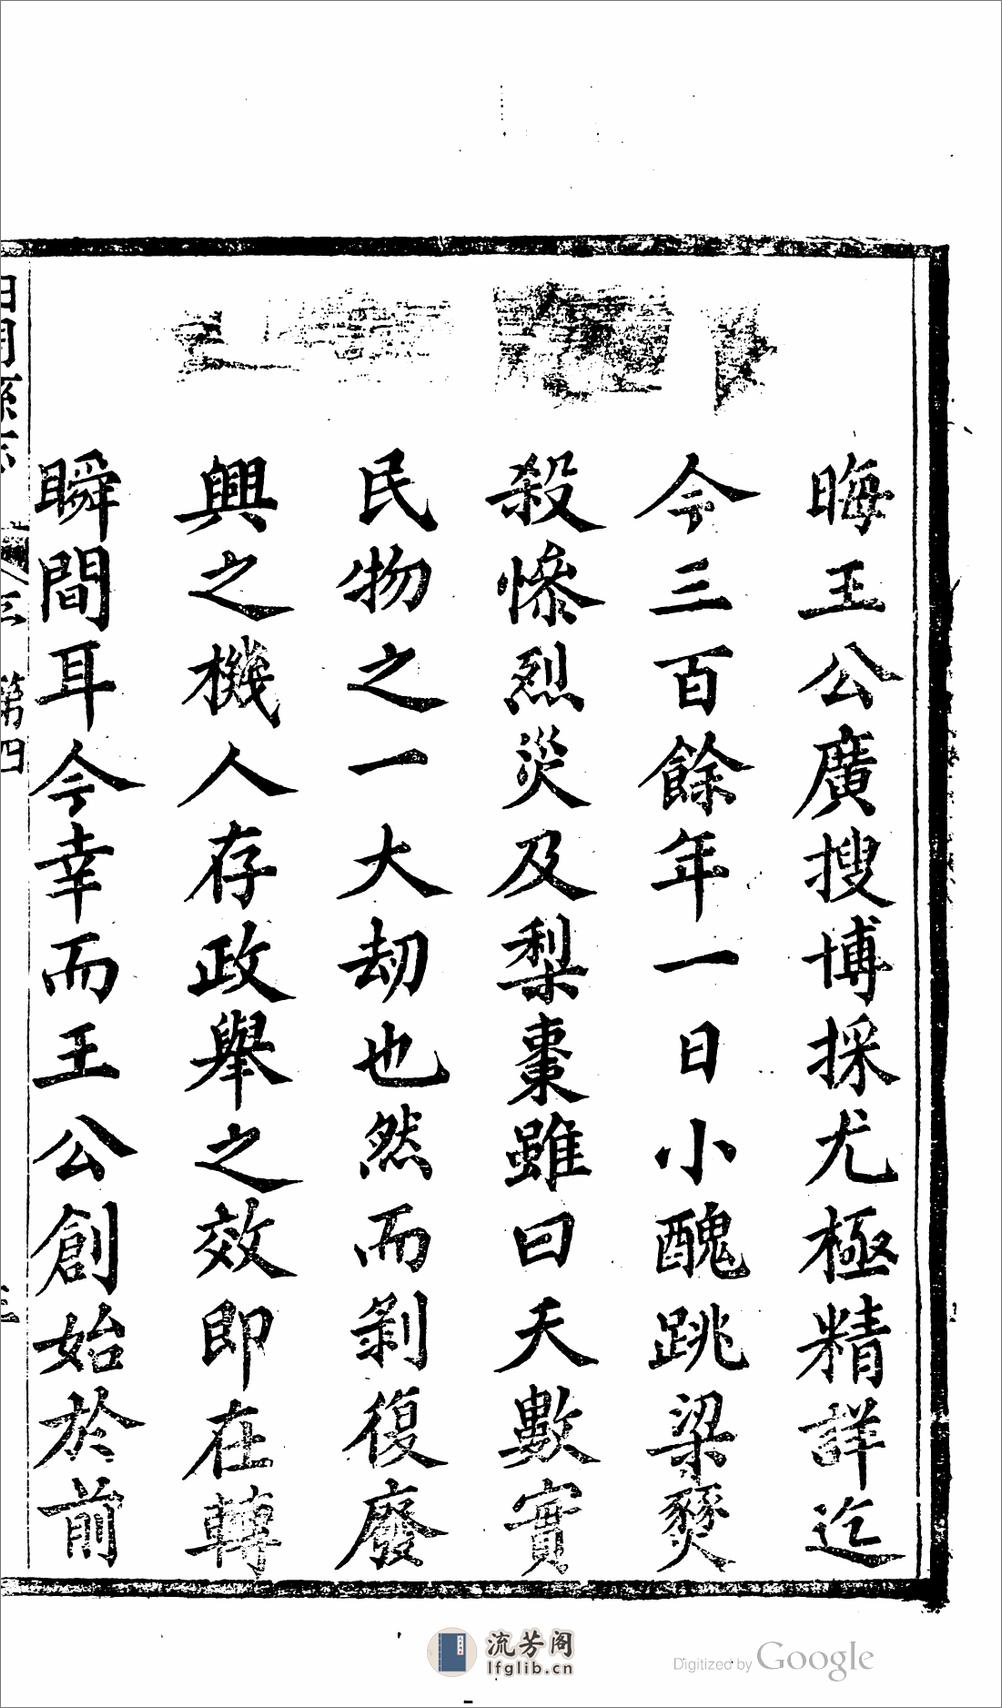 晦王公廣搜博採尤極精詳迄
今三百餘年一日小醜跳梁燹
殺慘烈災及梨棗雖曰天數實
民物之一大劫也然而剝復廢
興之機人存政舉之效即在轉
瞬間耳今幸而王公創始於前
第四
三
流芳阁
lfglib.cn
Digitized by Google